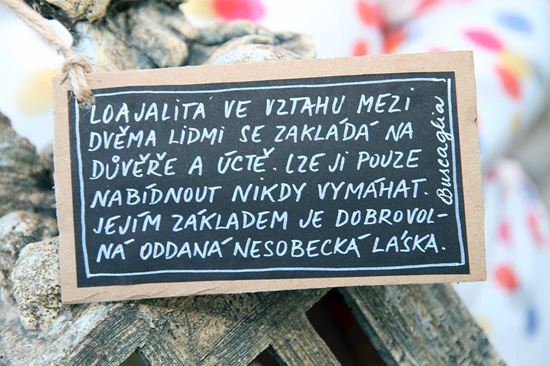 LOAJALITA VE VZTAHU MEZI
DVĚMA LIDMI SE ZAKLÁDÁ NA
DŮVĚŘE A ÚCTĚ. LZE JI POUZE
NABÍDNOUT NIKDY VYMÁHAT.
JEJÍM ZÁKLADEM JE DOBROVOL-
NÁ ODDANÁ NESOBECKÁ LÁSKA.
Buscaglia